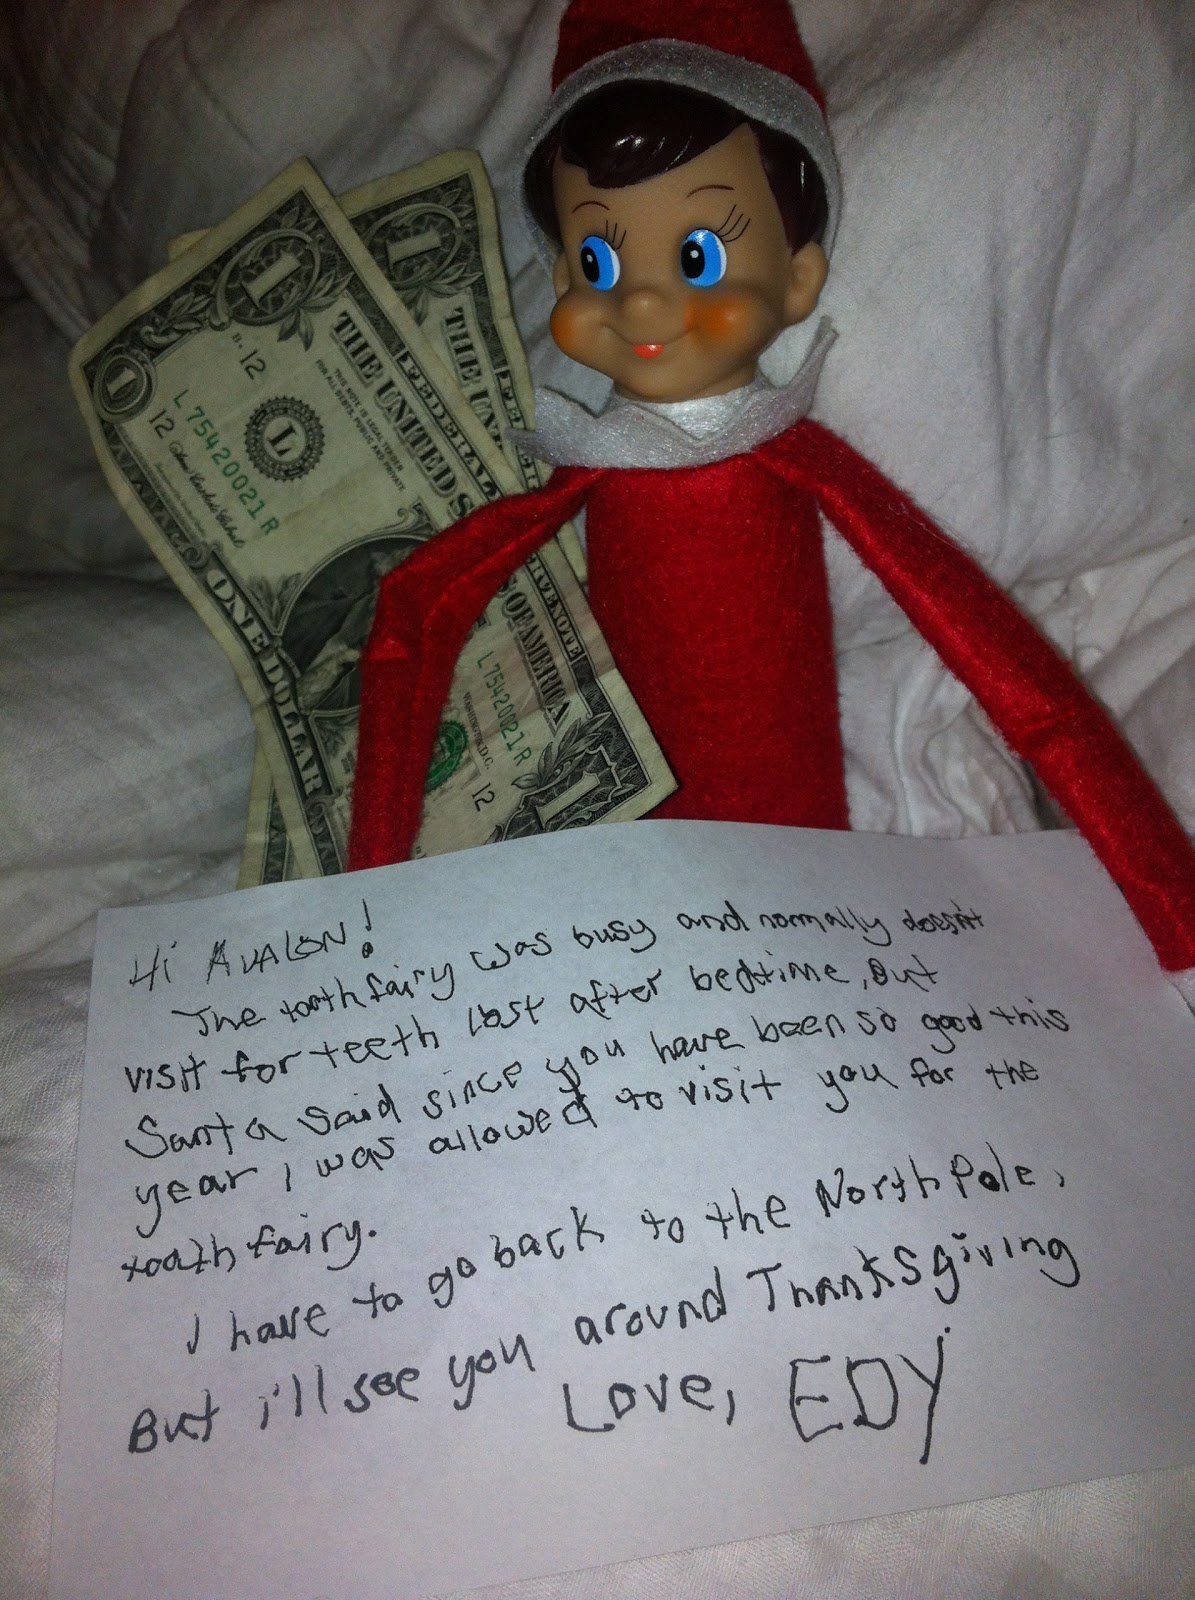 1
1
THE UNITED S
FEDERAL
THE UNI
B. 12
THIS NOTE IS LEGAL TENDER
FOR ALL DEBTS, PUBLIC AND PRIVATE
L 75420021 R
L
12
1
ONE DOLLAR
S OF AMERICA
RVE NOTE
L 75420021 R
WASHINGTON, D.C.
12
1
Hi AVALON!
The toothfairy was busy and normally doesn't
visit for teeth lost after bedtime, But
Santa said since you have been so good this
year, I was allowed to visit you for the
toothfairy.
I have to go back to the North Pole,
But i'll see you around Thanksgiving
Love, EDY